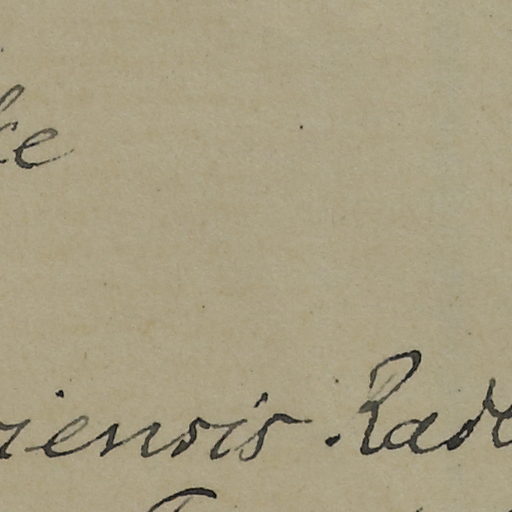 ke
iensis . Rad